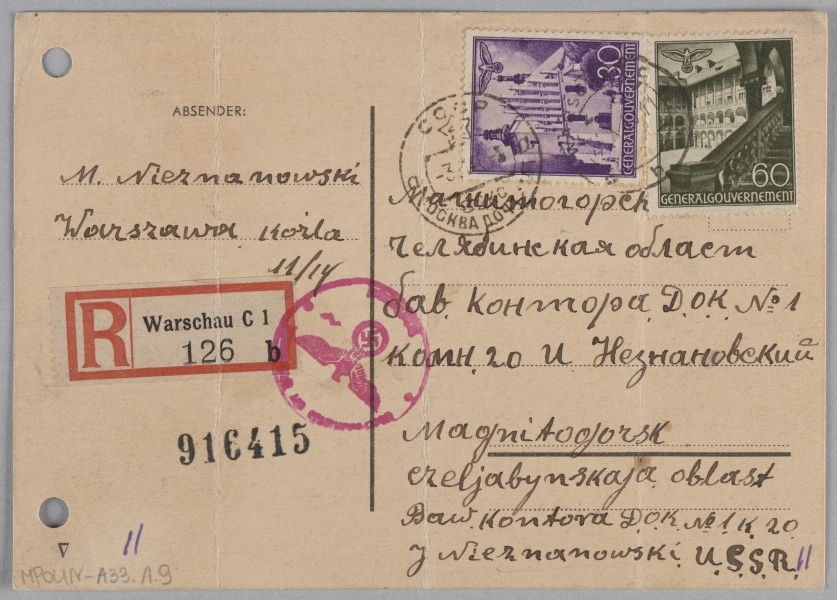 ABSENDER:
M. Nieznanowski
Warszawa Koźla
11/14
R
Warschau C 1
126 b
916415
30
GENERALGOUVERNEMENT
60
GENERALGOUVERNEMENT
МОСКВА
Магнитогорск
Челябинская област
бав. контора Д.О.К. № 1
комн. 20 И Незнановский
Magnitogorsk
czeljabynskaja oblast
Baw. Kontora D.O.K. № 1 K. 20
J Nieznanowski U.S.S.R.
11
11
MPOLIN-A33.1.9